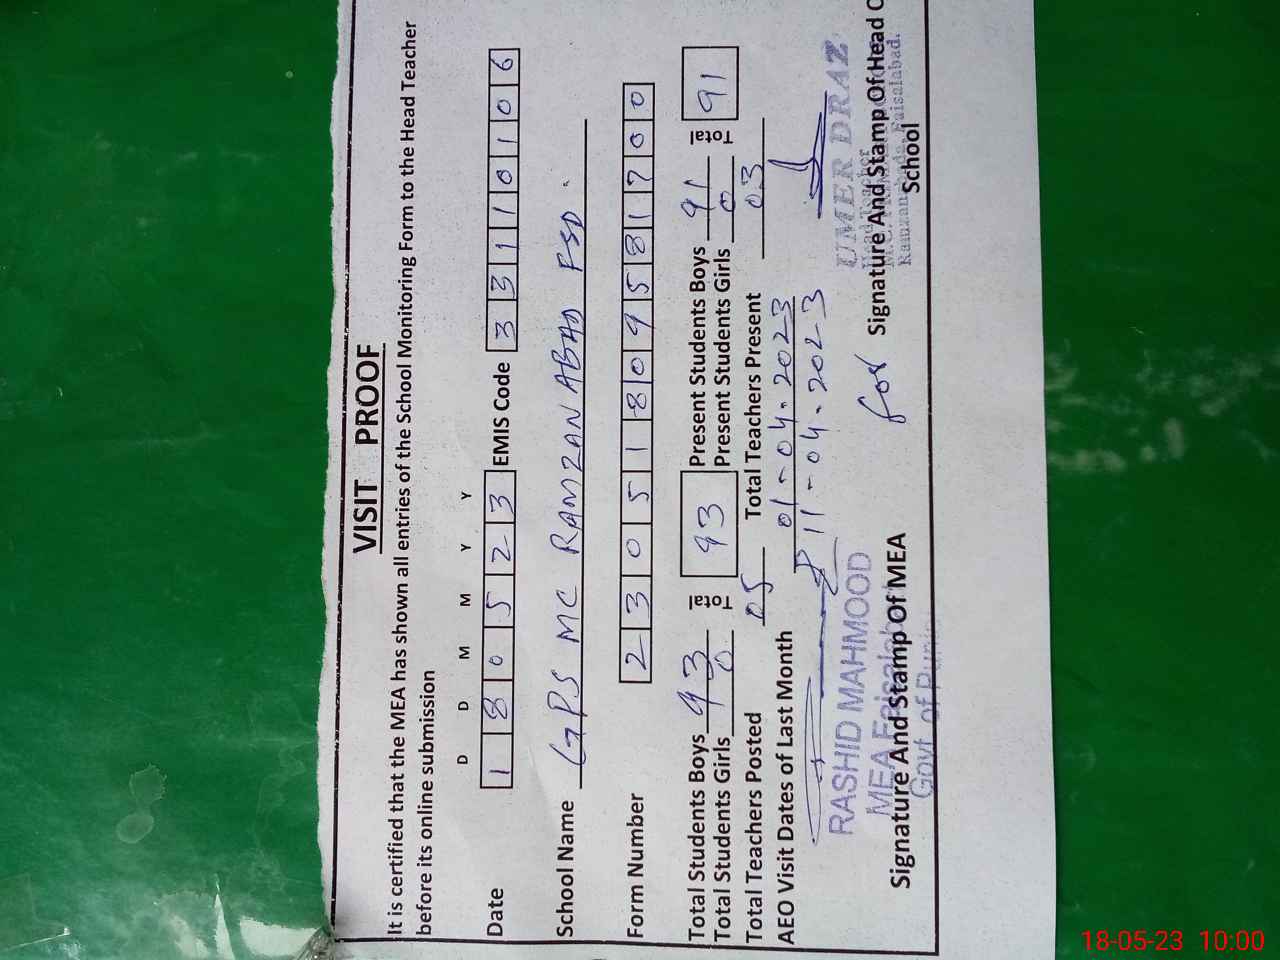 VISIT PROOF
It is certified that the MEA has shown all entries of the School Monitoring Form to the Head Teacher
before its online submission
D D M M Y Y
Date 1 8 0 5 2 3 EMIS Code 3 3 1 1 0 1 0 6
School Name GPS MC RAMZAN ABAD FSD.
Form Number 2 3 0 5 1 8 0 9 5 8 1 7 0 0
Total Students Boys 93 Total 93 Present Students Boys 91 Total 91
Total Students Girls 0 Present Students Girls 0
Total Teachers Posted 05 Total Teachers Present 03
AEO Visit Dates of Last Month 01-04-2023
11-04-2023
RASHID MAHMOOD
MEA Faisalabad
Govt of
UMER DRAZ
Head Teacher
Faisalabad.
for
Signature And Stamp Of MEA Signature And Stamp Of Head Of
School
18-05-23 10:00